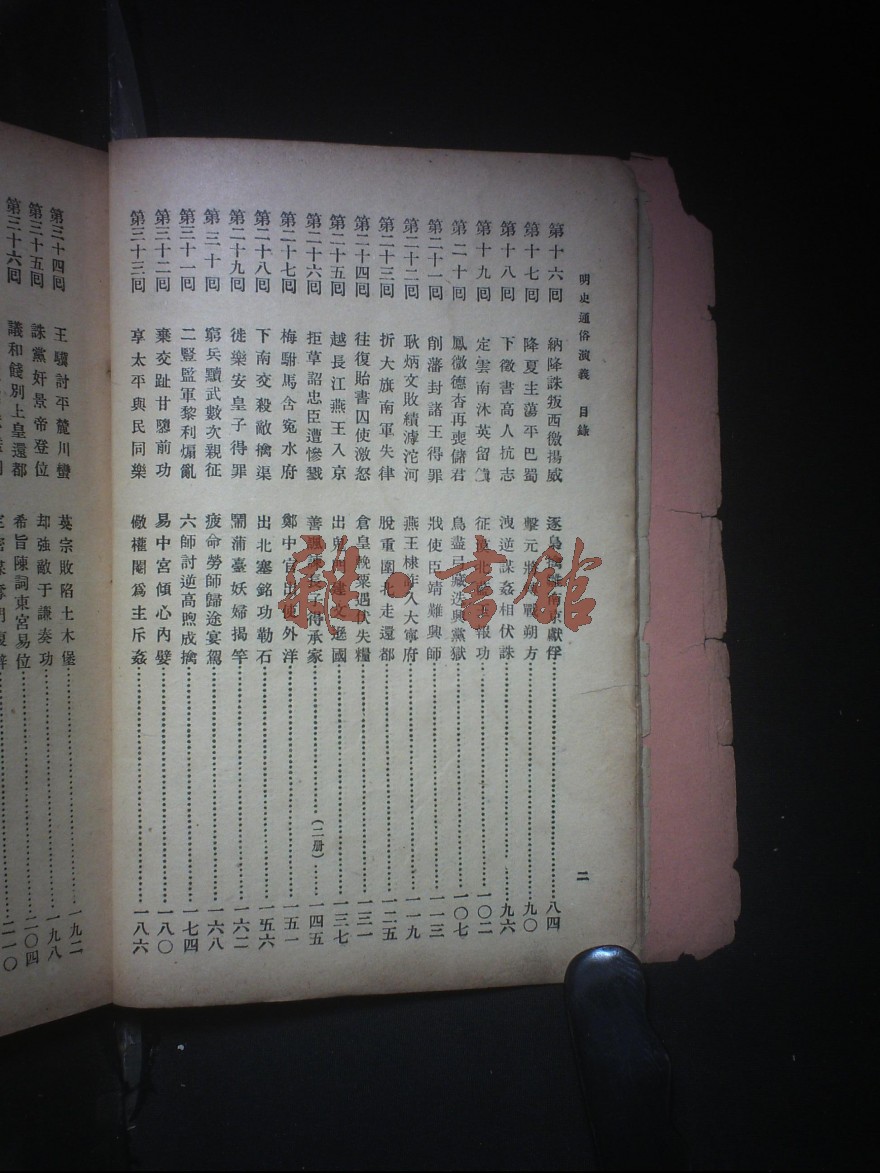 明史通俗演義 目錄 二
第十六回 納降誅叛西徼揚威 逐梟擒雛南京獻俘 八四
第十七回 降夏主蕩平巴蜀 擊元將戰朔方 九〇
第十八回 下徵書高人抗志 洩逆謀奸相伏誅 九六
第十九回 定雲南沐英留鎮 征漠北 報功 一〇二
第二十回 鳳微德杳再喪儲君 鳥盡弓藏迭興黨獄 一〇七
第二十一回 削藩封諸王得罪 戕使臣靖難興師 一一三
第二十二回 耿炳文敗績滹沱河 燕王棣詐入大寧府 一一九
第二十三回 折大旗南軍失律 脫重圍北走還都 一二五
第二十四回 往復貽書囚使激怒 倉皇輓粟遇伏失糧 一三一
第二十五回 越長江燕王入京 出鬼門建文遜國 一三七
第二十六回 拒草詔忠臣遭慘戮 善諷諫長子得承家 (二册) 一四五
第二十七回 梅駙馬含冤水府 鄭中官出使外洋 一五一
第二十八回 下南交殺敵擒渠 出北塞銘功勒石 一五六
第二十九回 徙樂安皇子得罪 鬧蒲臺妖婦揭竿 一六二
第三十回 窮兵黷武數次親征 疲命勞師歸途宴駕 一六八
第三十一回 二豎監軍黎利煽亂 六師討逆高煦成擒 一七四
第三十二回 棄交趾甘隳前功 易中宮傾心內嬖 一八〇
第三十三回 享太平與民同樂 儆權閹爲主斥姦 一八六
第三十四回 王驥討平麓川蠻 英宗敗陷土木堡 一九二
第三十五回 誅黨奸景帝登位 却強敵于謙奏功 一九八
第三十六回 議和餞別上皇還都 希旨陳詞東宮易位 二〇四
二一〇
雜·書館